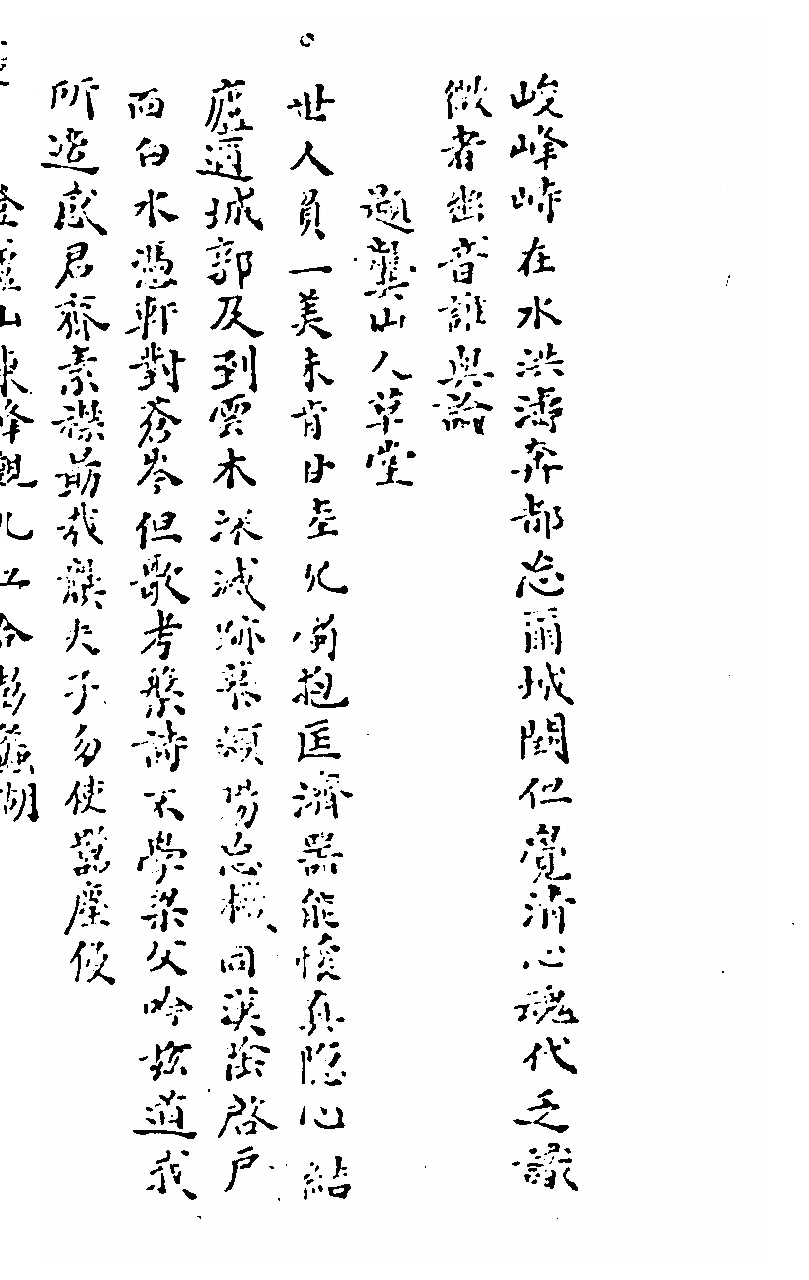 峻峰峙在水洪濤奔都忘爾城闉但覺清心魂代乏識
微者幽音誰與論
題龔山人草堂
世人負一美未肯甘陸沉獨抱匡濟器能懷真隱心結
廬邇城郭及到雲木深滅跡慕潁陽忘機同漢陰啓戶
面白水憑軒對蒼岑但歌考槃詩不學梁父吟玆道我
所適感君齊素襟勖哉龔夫子勿使囂塵侵
登廬山東峰觀九江合彭蠡湖